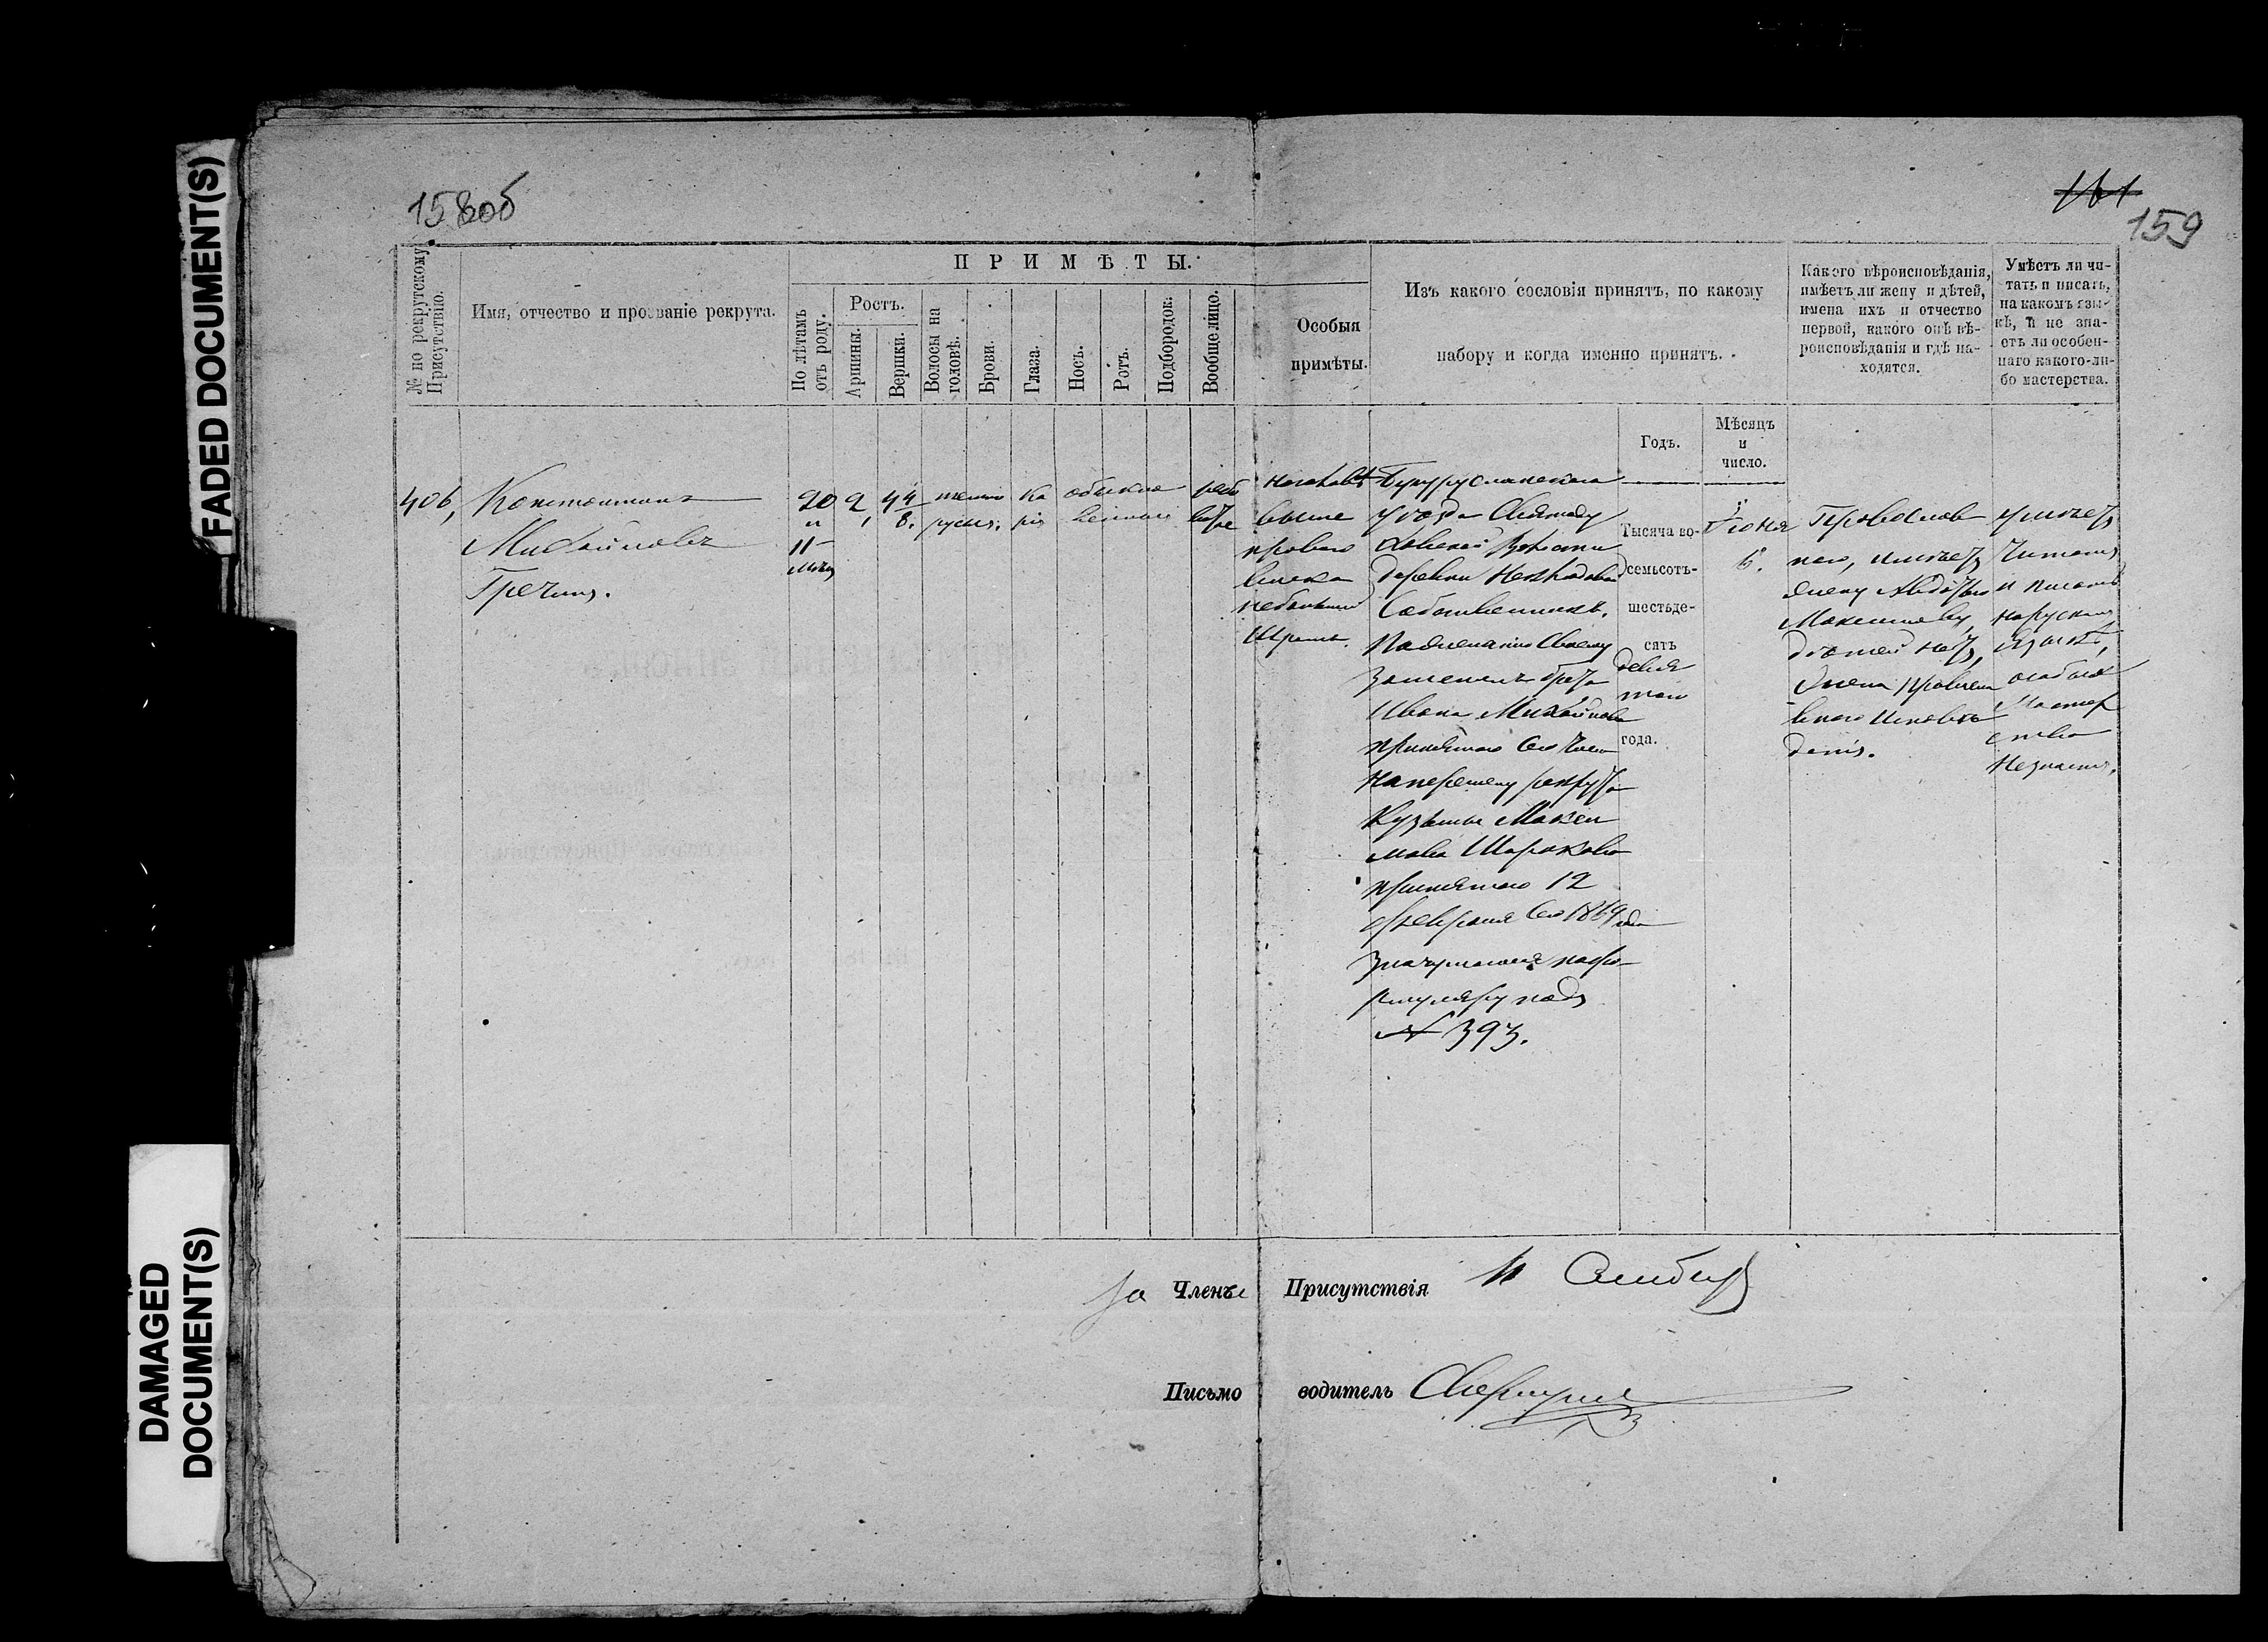 FADED DOCUMENT(S)
DAMAGED
DOCUMENT(S)
158об
161
159
№ по рекрутскому
Присутствію.
Имя, отчество и прозваніе рекрута.
ПРИМѢТЫ.
По лѣтамъ
отъ роду.
Ростъ.
Аршины.
Вершки.
Волосы на
головѣ.
Брови.
Глаза.
Носъ.
Ротъ.
Подбородок.
Вообще лицо.
Особыя
примѣты.
Изъ какого сословія принятъ, по какому
набору и когда именно принятъ.
Какого вѣроисповѣданія,
имѣетъ ли жену и дѣтей,
имена ихъ и отчество
первой, какого онѣ вѣ-
роисповѣданія и гдѣ на-
ходятся.
Умѣетъ ли чи-
тать и писать,
на какомъ язы-
кѣ, и не зна-
етъ ли особен-
наго какого-ли-
бо мастерства.
Годъ.
Мѣсяцъ
и
число.
406,
Константинъ
Михайловъ
Гречинъ.
20
и
11
мѣц
2,
4 4/8.
темно
русыя.
ка
рія
обыкно
венные
рябо
вытое
на лбу
выше
праваго
виска
небольшой
шрамъ.
Бугурусланскаго
уѣзда
волости
деревни
Собственникъ.
По желанію своему
замѣнилъ брата
Ивана Михайлова
принятаго
на перемену рекрута
Кузьмы Макси
мова Шарохова
принятаго 12
февраля сего 1869 года
значущагося по фо
рмуляру подъ
№ 393.
Тысяча во-
семьсотъ-
шестьде-
сять
девя
таго
года.
Іюня
6.
Православ
наго, имѣетъ
жену Авдотью
Максимову,
дѣтей нетъ,
жена православ
наго исповѣ
данія.
умѣетъ
читать
и писать
на русскомъ
языкѣ,
особаго
мастер
ства
незнаетъ.
За Члена Присутствія
Письмоводитель